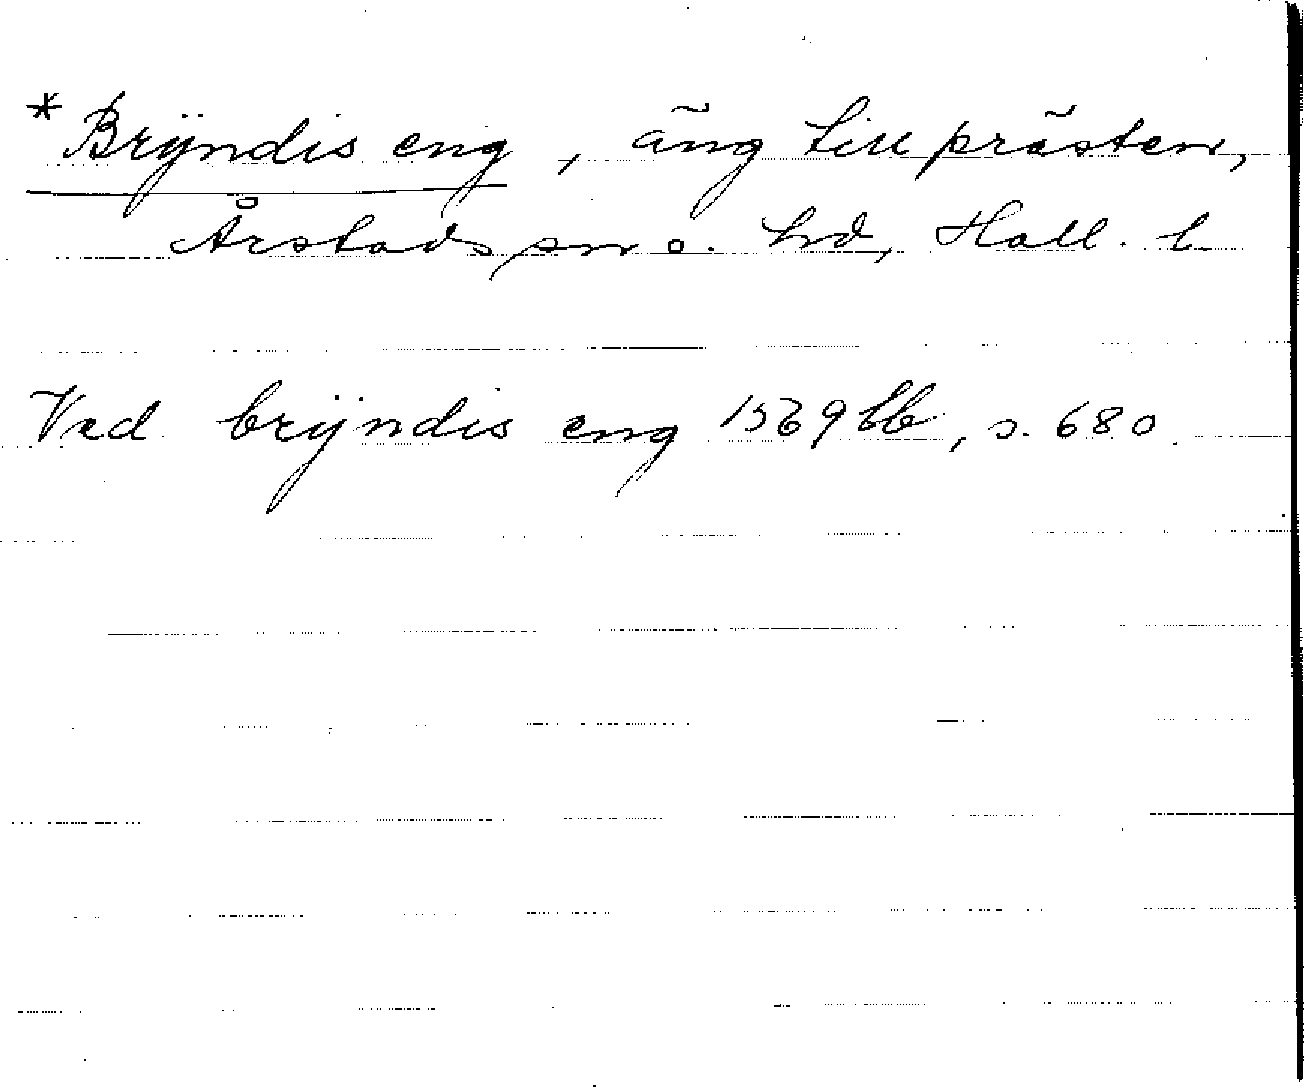 * Brÿndis eng, äng till prästen,
Årstads sn o. hd, Hall. l.
Ved brÿndis eng 1569 bb, s. 680.